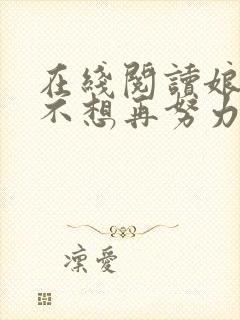 在綫閱讀娘
不想再努力
凜愛